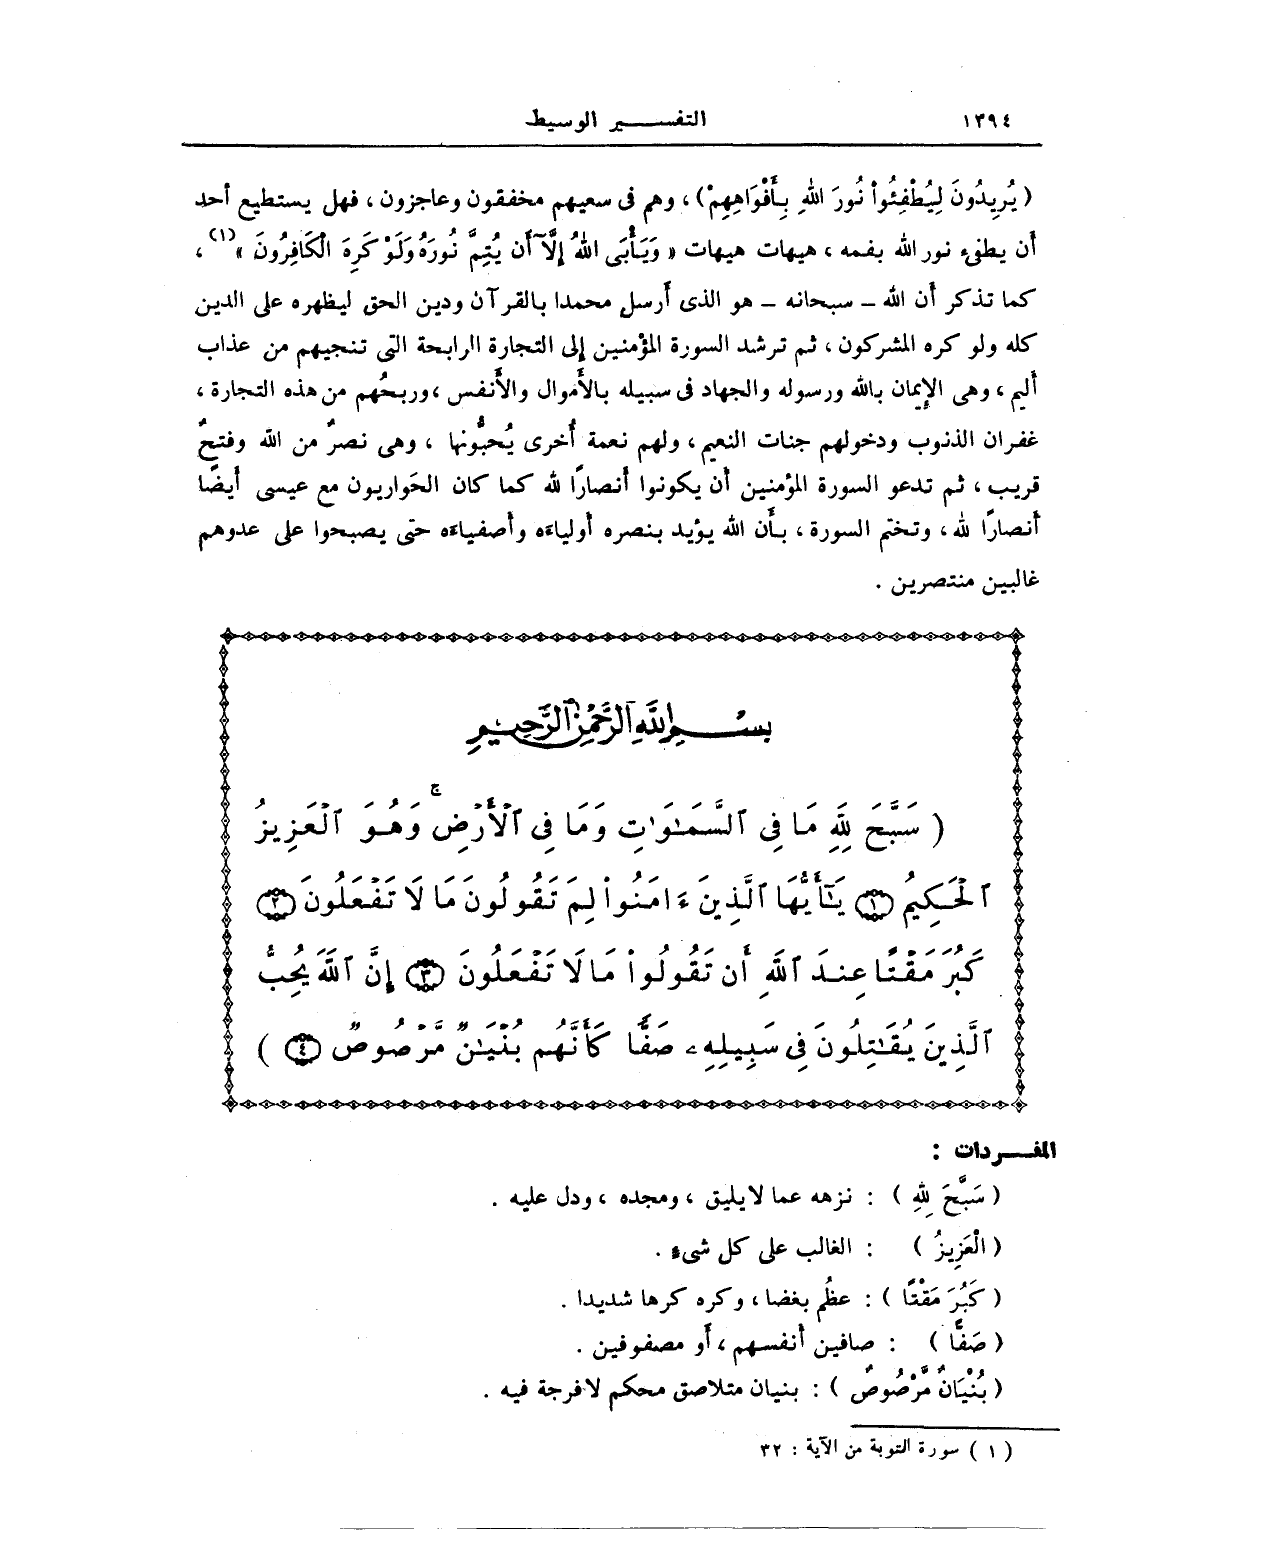 ١٣٩٤
التفسـير الوسيط
( يُرِيدُونَ لِيُطْفِئُواْ نُورَ اللهِ بِأَفْوَاهِهِمْ) ، وهم فى سعيهم مخفقون وعاجزون ، فهل يستطيع أحد
أن يطفىء نور الله بفمه ، هيهات هيهات « وَيَأْبَى اللهُ إِلَّآ أَن يُتِمَّ نُورَهُ وَلَوْ كَرِهَ الْكَافِرُونَ » (١) ،
كما تذكر أن الله - سبحانه - هو الذى أرسل محمدا بالقرآن ودين الحق ليظهره على الدين
كله ولو كره المشركون ، ثم ترشد السورة المؤمنين إلى التجارة الرابحة التى تنجيهم من عذاب
أليم ، وهى الإيمان بالله ورسوله والجهاد فى سبيله بالأموال والأنفس ، وربحُهم من هذه التجارة ،
غفران الذنوب ودخولهم جنات النعيم ، ولهم نعمة أخرى يُحبُّونها ، وهى نصرٌ من الله وفتحٌ
قريب ، ثم تدعو السورة المؤمنين أن يكونوا أنصارًا لله كما كان الحَواريون مع عيسى أيضًا
أنصارًا لله ، وتختم السورة ، بأَن الله يؤيد بنصره أولياءَه وأصفياءَه حتى يصبحوا على عدوهم
غالبين منتصرين .
بِسْمِ اللَّهِ الرَّحْمَٰنِ الرَّحِيمِ
( سَبَّحَ لِلَّهِ مَا فِى ٱلسَّمَـٰوَٰتِ وَمَا فِى ٱلْأَرْضِ ۚ وَهُوَ ٱلْعَزِيزُ
ٱلْحَكِيمُ ﴿١﴾ يَـٰٓأَيُّهَا ٱلَّذِينَ ءَامَنُوا۟ لِمَ تَقُولُونَ مَا لَا تَفْعَلُونَ ﴿٢﴾
كَبُرَ مَقْتًا عِندَ ٱللَّهِ أَن تَقُولُوا۟ مَا لَا تَفْعَلُونَ ﴿٣﴾ إِنَّ ٱللَّهَ يُحِبُّ
ٱلَّذِينَ يُقَـٰتِلُونَ فِى سَبِيلِهِۦ صَفًّا كَأَنَّهُم بُنْيَـٰنٌ مَّرْصُوصٌ ﴿٤﴾ )
المفـردات :
( سَبَّحَ لِلهِ ) : نزهه عما لا يليق ، ومجده ، ودل عليه .
( الْعَزِيزُ ) : الغالب على كل شىءٍ .
( كَبُرَ مَقْتًا ) : عظُم بغضا ، وكره كرها شديدا .
( صَفًّا ) : صافين أنفسهم ، أو مصفوفين .
( بُنْيَانٌ مَّرْصُوصٌ ) : بنيان متلاصق محكم لا فرجة فيه .
( ١ ) سورة التوبة من الآية : ٣٢